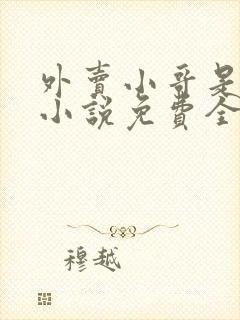 外賣小哥是
小說免費全
穆越